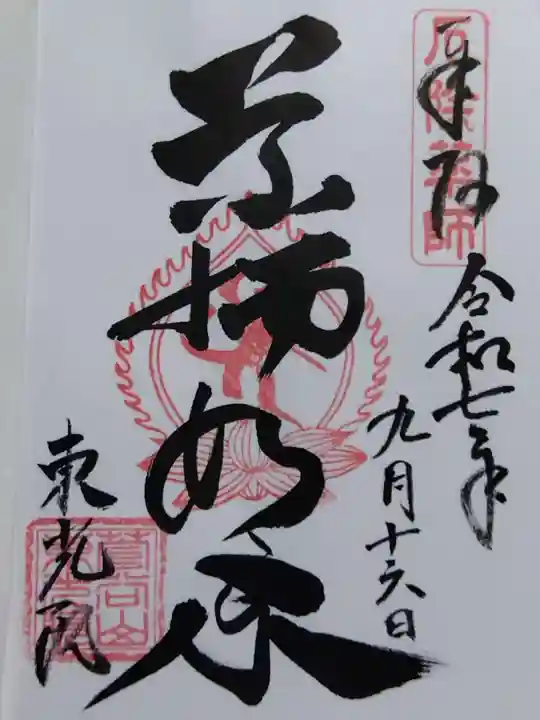 奉拝
厄除薬師
令和七年
九月十六日
薬師如来
東光閣